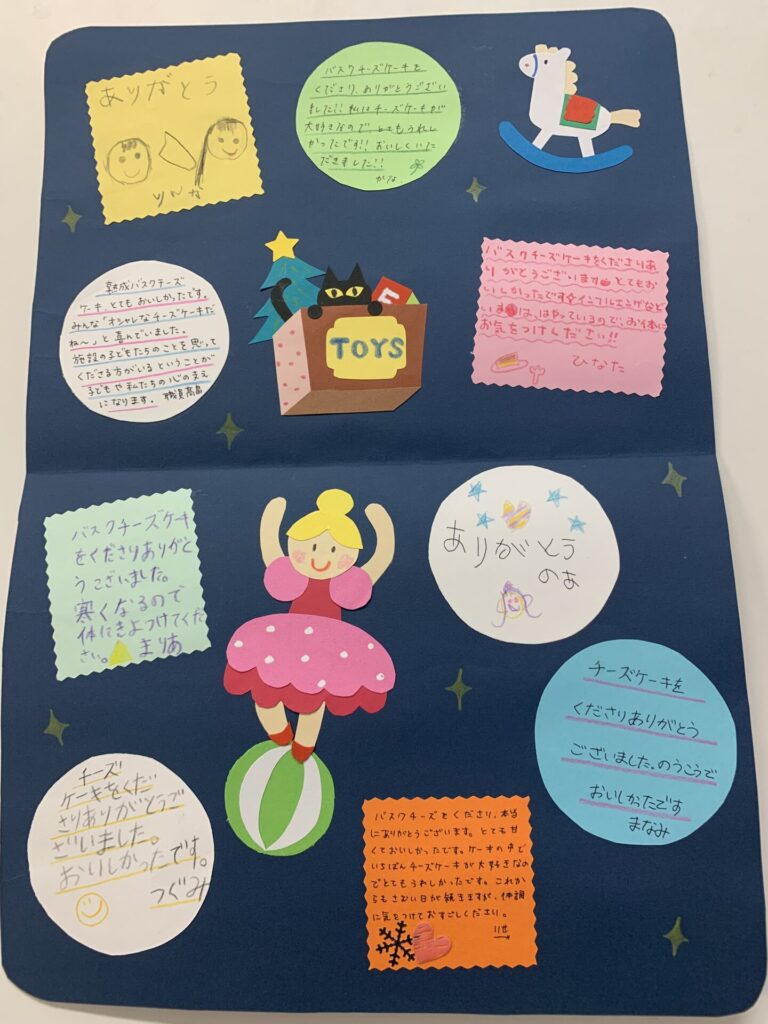 ありがとう
りんな
バスクチーズケーキを
くださり、ありがとうござい
ました!! 私はチーズケーキが
大好きなので、とてもうれし
かったです!! おいしくいた
だきました!!
かな
熟成バスクチーズ
ケーキ、とてもおいしかったです。
みんな「オシャレなチーズケーキだ
ね〜」と喜んでいました。
施設の子どもたちのことを思って
くださる方がいるということが
子どもや私たちの心の支え
になります。 職員髙畠
TOYS
バスクチーズケーキをくださりあ
りがとうございます とてもお
いしかったです インフルエンザなど
いま は、はやっているので、お体に
お気をつけください!!
ひなた
バスクチーズケーキ
をくださりありがと
うございました。
寒くなるので
体にきよつけてくだ
さい。 まりあ
ありがとう
のあ
チーズケーキを
くださりありがとう
ございました。のうこうで
おいしかったです
まなみ
チーズ
ケーキをくだ
さりありがとうご
ざいました。
おいしかったです。
つぐみ
バスクチーズをくださり、本当
にありがとうございます。とても甘
くておいしかったです。ケーキの中で
いちばんチーズケーキが大好きなの
でとてもうれしかったです。これか
らもさむい日が続きますが、体調
に気をつけておすごしください。